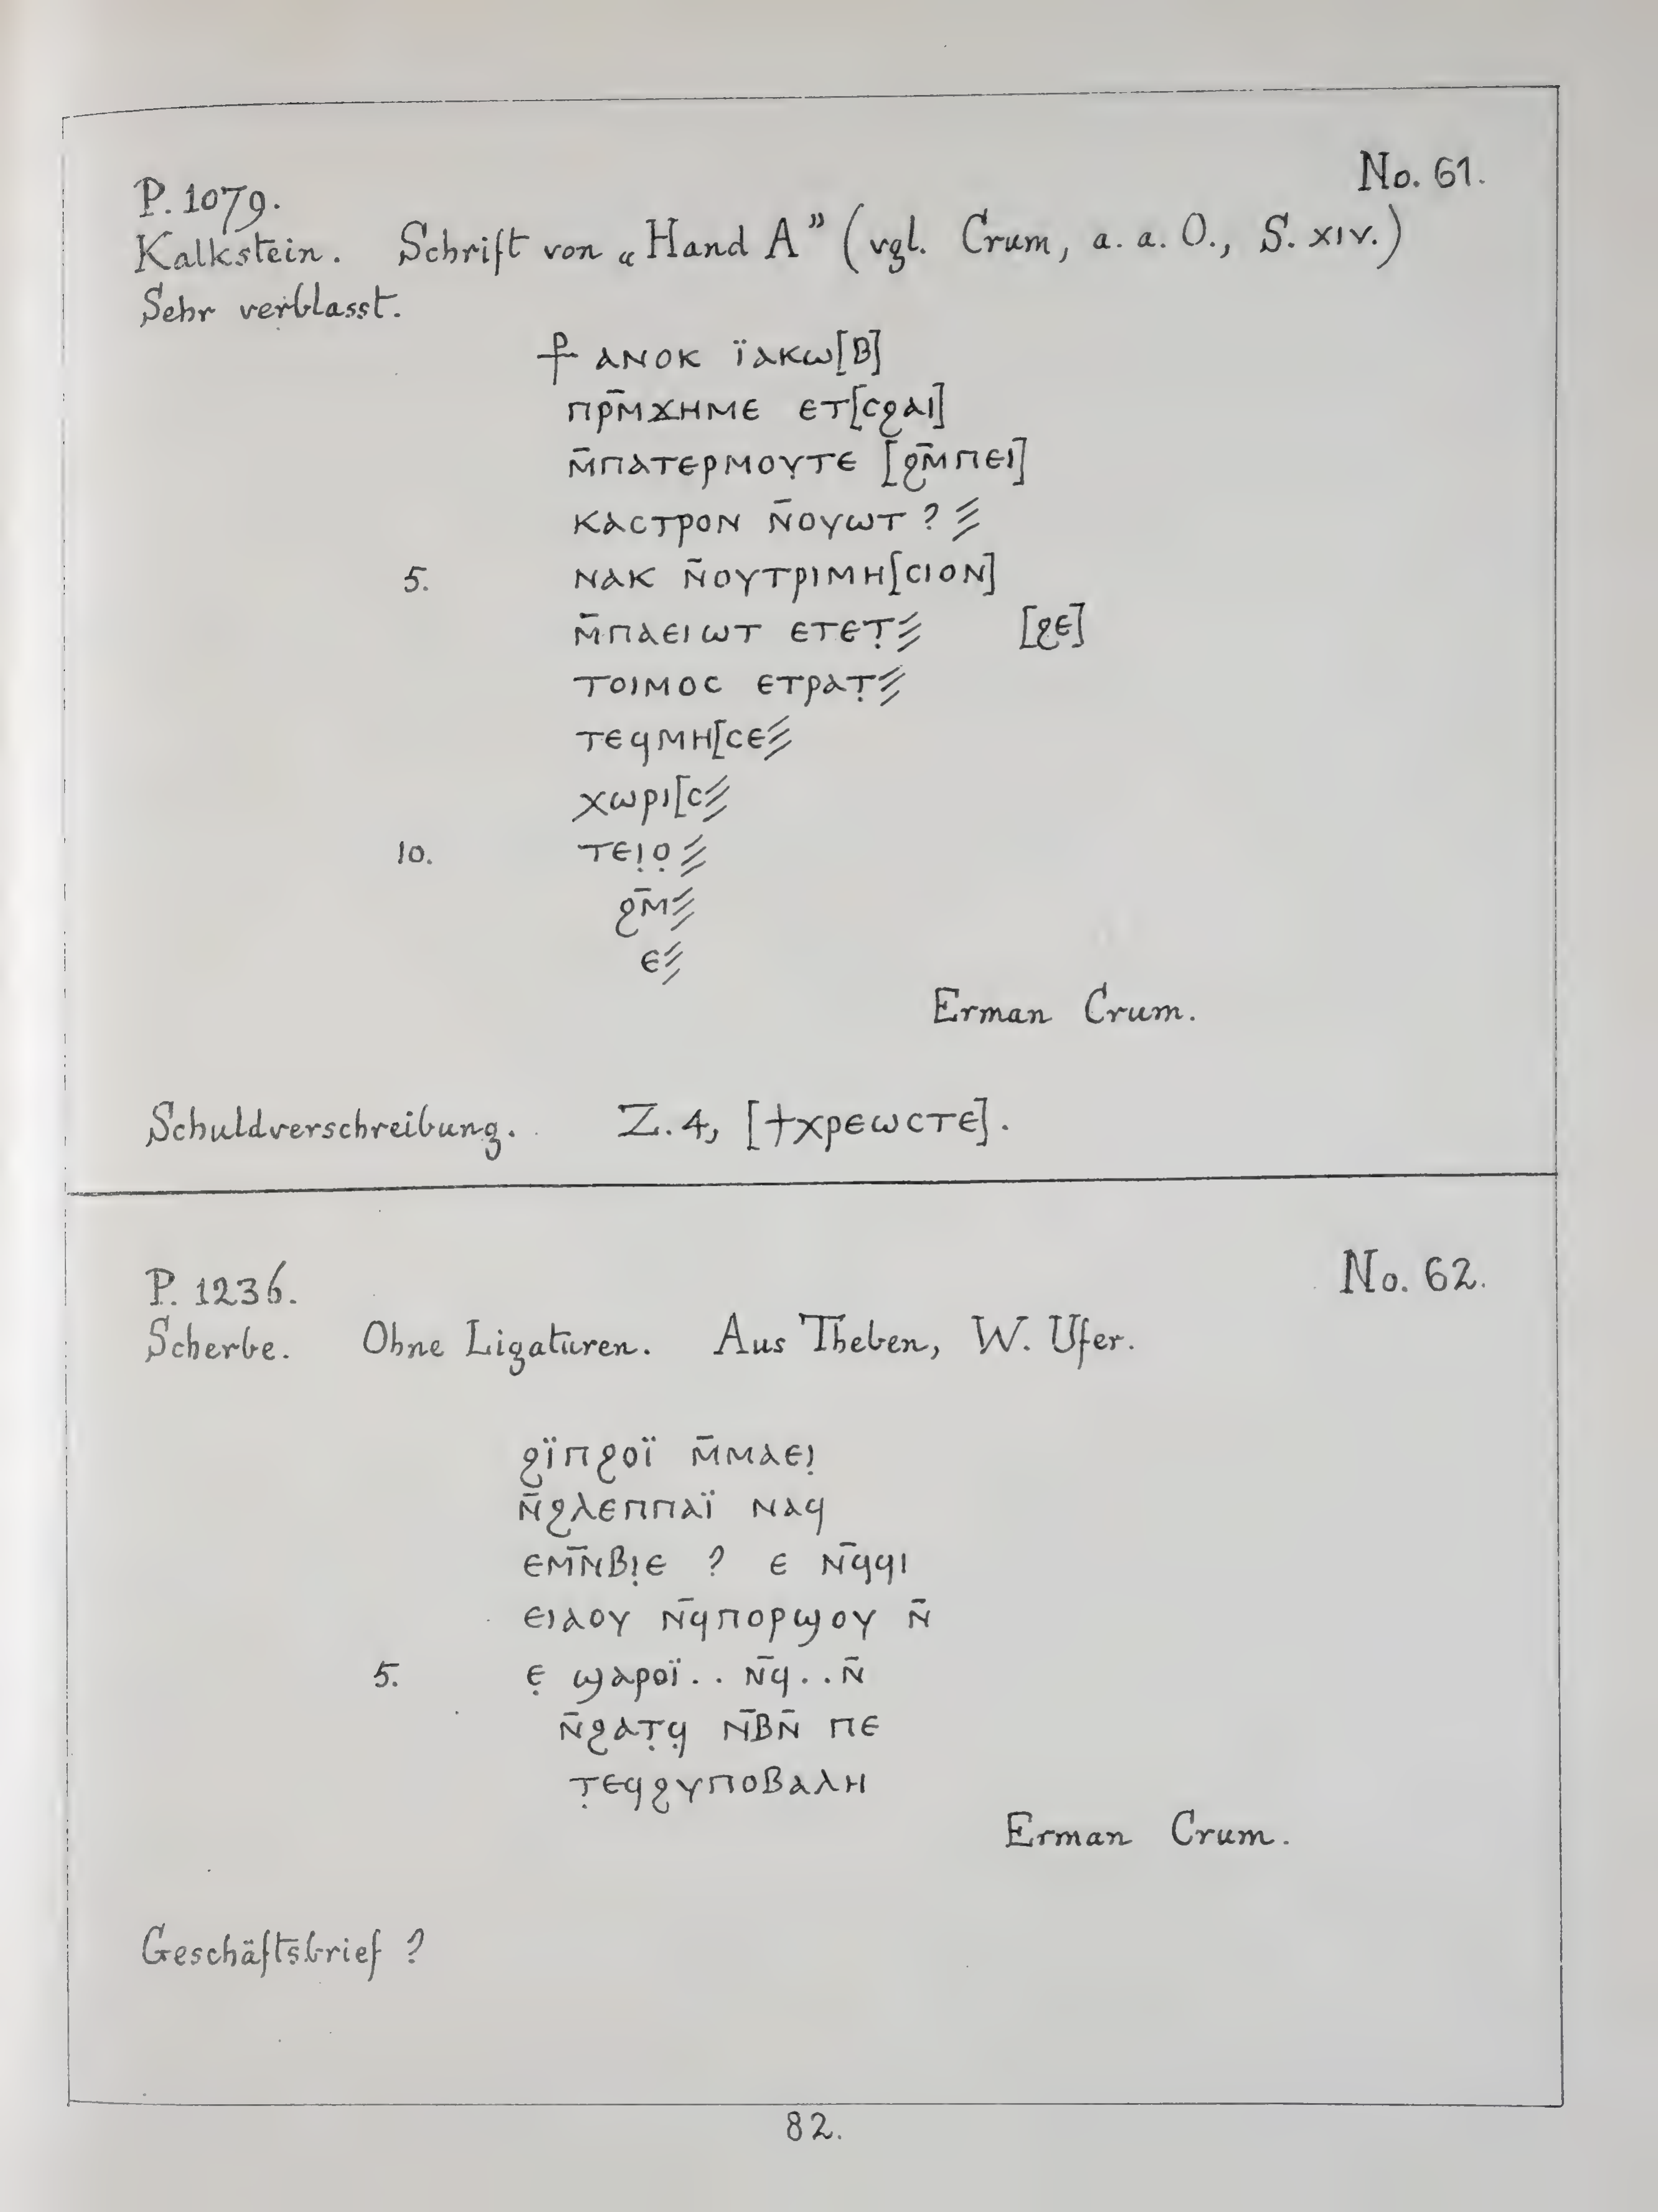 No. 61.
P. 1079.
Kalkstein. Schrift von „Hand A” (vgl. Crum, a. a. O., S. XIV.)
Sehr verblasst.
⳨ ⲁⲛⲟⲕ ⲓ̈ⲁⲕⲱ[ⲃ]
ⲡⲣ̄ⲙϫⲏⲙⲉ ⲉⲧ[ⲥϩⲁⲓ]
ⲙ̄ⲡⲁⲧⲉⲣⲙⲟⲩⲧⲉ [ϩⲙ̄ⲡⲉⲓ]
ⲕⲁⲥⲧⲣⲟⲛ ⲛ̄ⲟⲩⲱⲧ ? ⫻
5. ⲛⲁⲕ ⲛ̄ⲟⲩⲧⲣⲓⲙⲏ[ⲥⲓⲟⲛ]
ⲙ̄ⲡⲁⲉⲓⲱⲧ ⲉⲧⲉⲧ̣⫻ [ϩⲉ]
ⲧⲟⲓⲙⲟⲥ ⲉⲧⲣⲁⲧ̣⫻
ⲧⲉϥⲙⲏ[ⲥⲉ⫻
ⲭⲱⲣⲓ[ⲥ⫻
10. ⲧⲉⲓ̣ⲟ̣⫻
ϩⲙ̄⫻
ⲉ⫻
Erman Crum.
Schuldverschreibung. Z. 4, [ϯⲭⲣⲉⲱⲥⲧⲉ].
No. 62.
P. 1236.
Scherbe. Ohne Ligaturen. Aus Theben, W. Ufer.
ϩⲓ̈ⲡϩⲟⲓ̈ ⲙ̄ⲙⲁⲉⲓ̣
ⲛ̄ϩⲗⲉⲡⲡⲁⲓ̈ ⲛⲁϥ
ⲉⲙⲛ̄ⲃⲓ̣ⲉ ? ⲉ ⲛϥ̄ϥⲓ
ⲉⲓⲁⲟⲩ ⲛϥ̄ⲡⲟⲣϣⲟⲩ ⲛ̄
5. ⲉ̣ ϣⲁⲣⲟⲓ̈ . . ⲛϥ̄ . . ⲛ̄
ⲛ̄ϩⲁⲧ̣ϥ̣ ⲛ̄ⲃⲛ̄ ⲡⲉ
ⲧ̣ⲉϥϩⲩⲡⲟⲃⲁⲗⲏ
Erman Crum.
Geschäftsbrief ?
82.